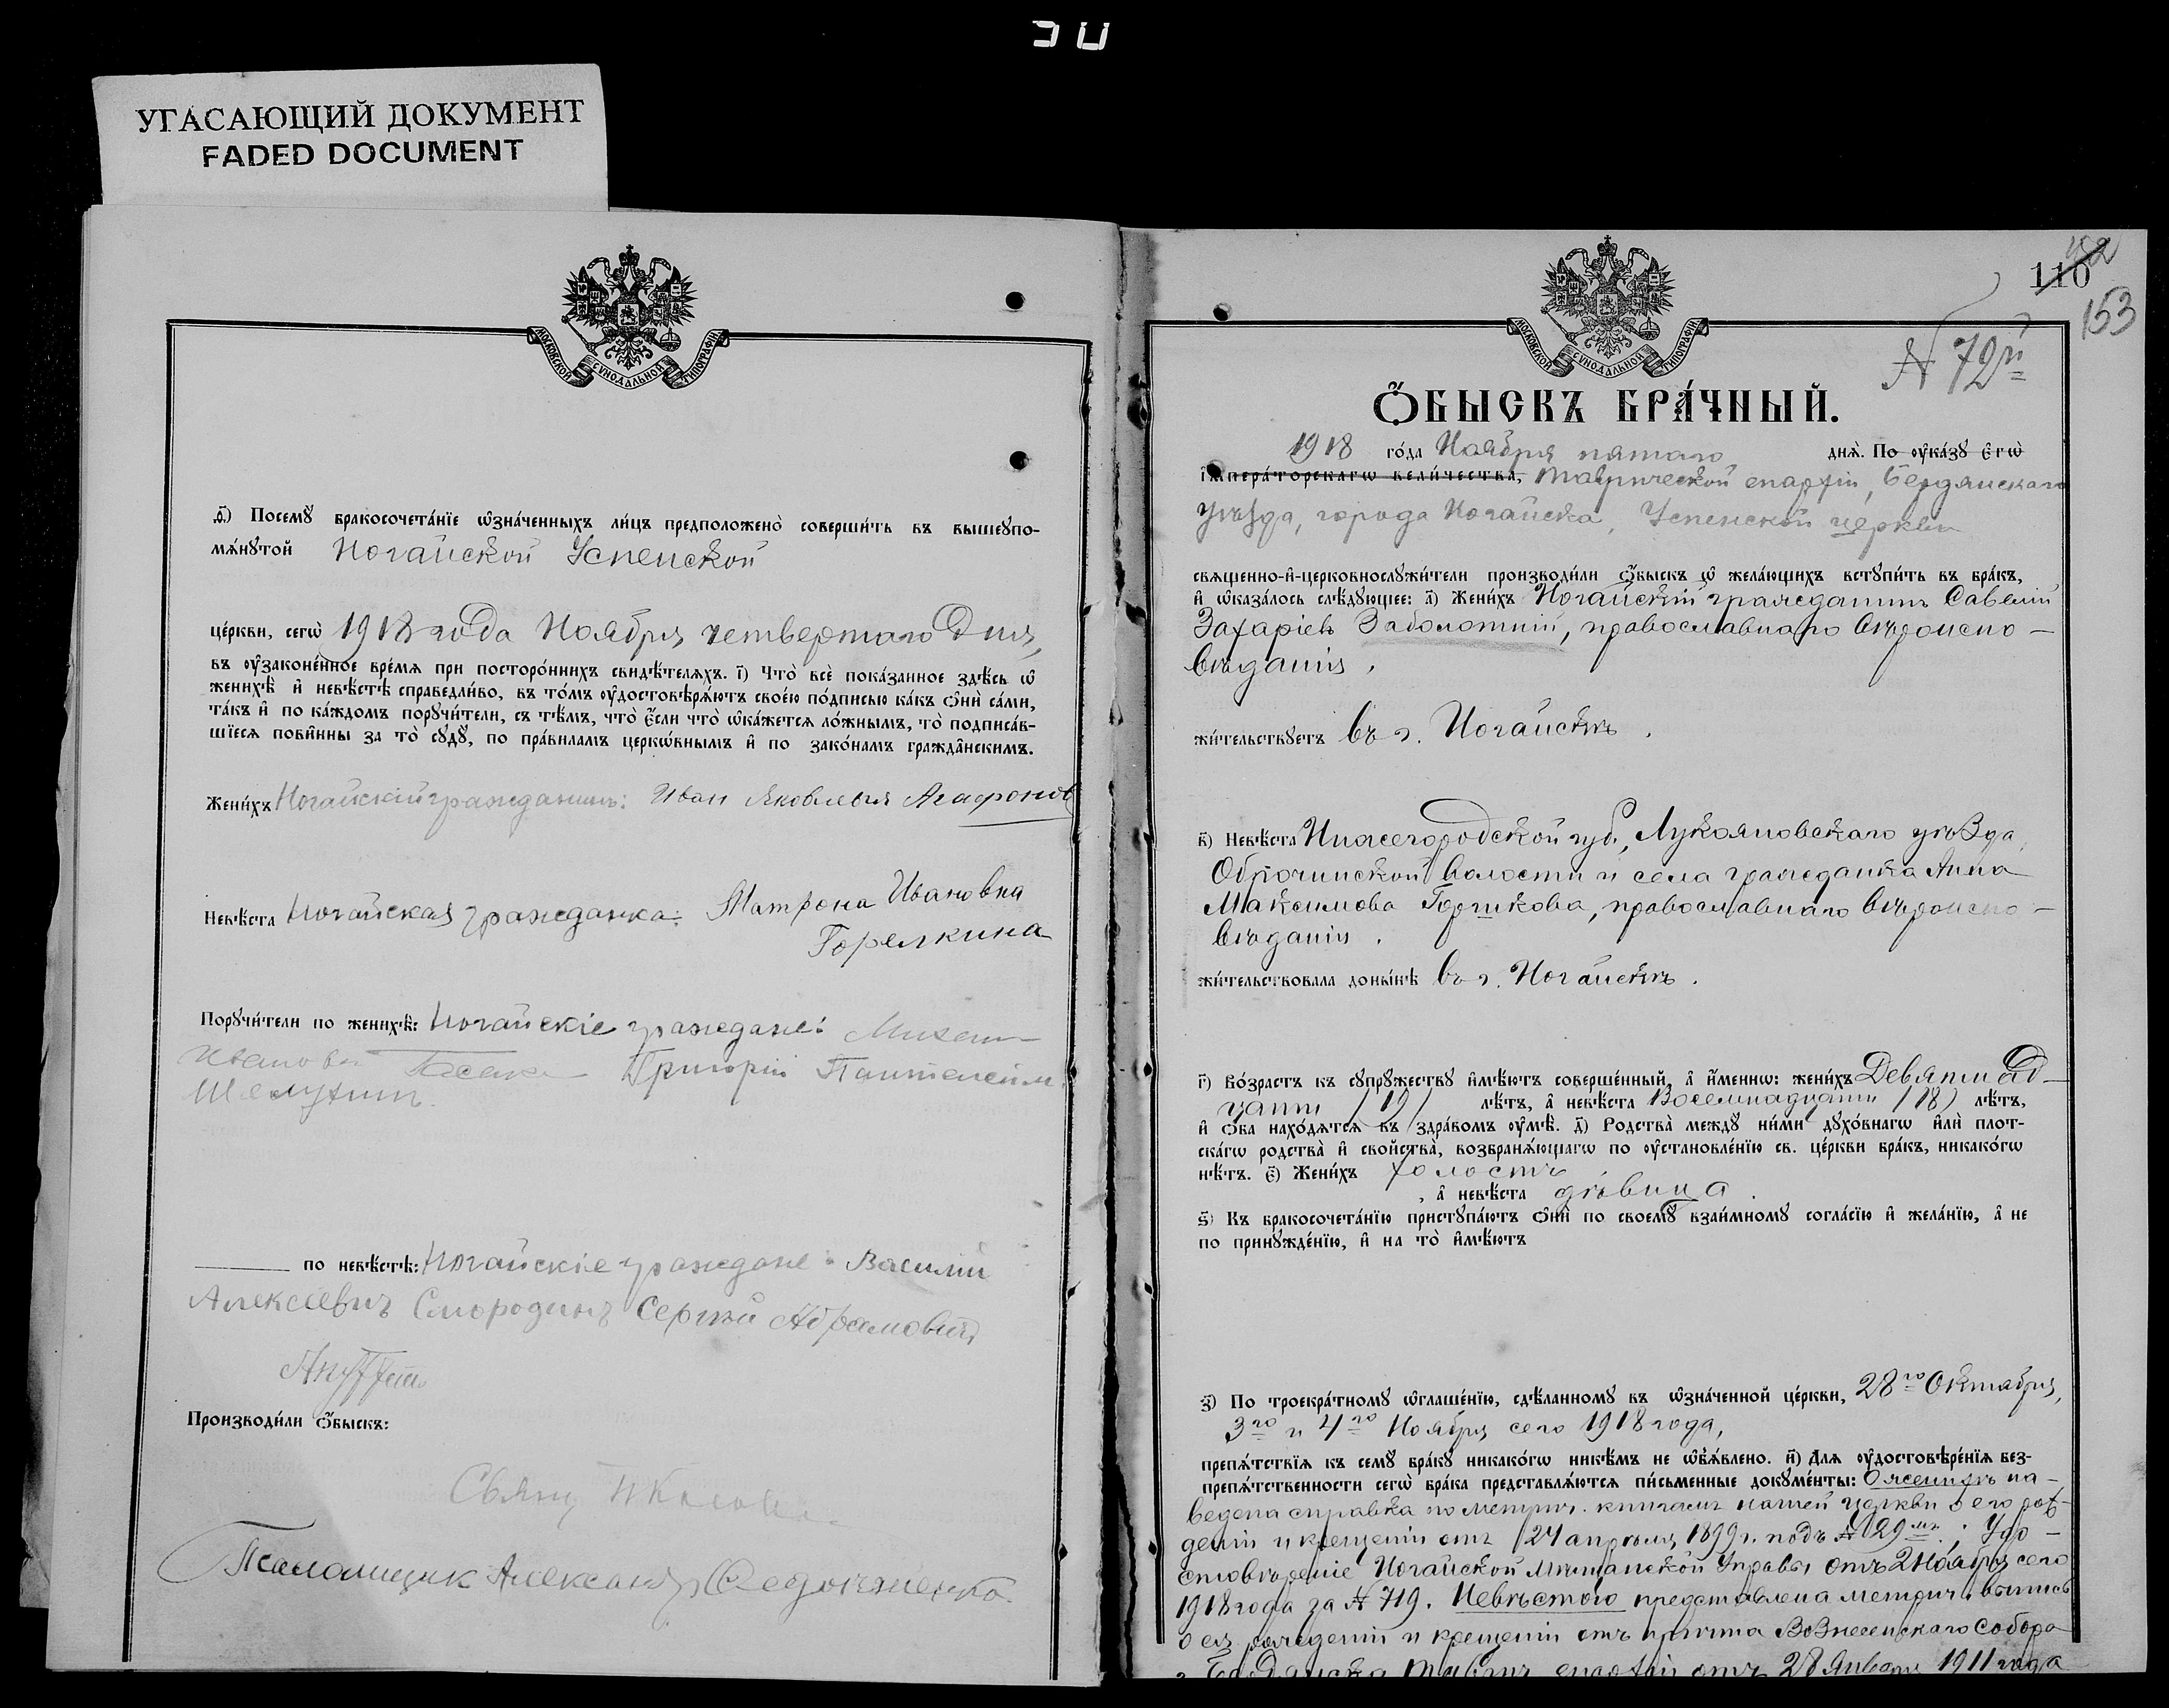 УГАСАЮЩИЙ ДОКУМЕНТ
FADED DOCUMENT
МОСКОВСКОЙ СУНОДАЛЬНОЙ ТИПОГРАФІИ
ѳ҃) Посемꙋ бракосочета́нїе ѡ҆зна́ченныхъ ли́цъ предположено̀ соверши́ть въ вышеꙋпо-
мѧ́нꙋтой Ногайской Успенской
це́ркви, сегѡ̀ 1918 года Ноября четвертаго дня,
въ ᲂу҆законе́нное вре́мѧ при посторо́ннихъ свидѣ́телѧхъ. і҃) Что̀ всѐ пока́занное здѣ́сь ѡ҆
женихѣ̀ и҆ невѣ́стѣ справедли́во, въ то́мъ ᲂу҆достовѣрѧ́ютъ свое́ю по́дписью ка́къ ѻ҆нѝ са́ми,
та́къ и҆ по ка́ждомъ порꙋчи́тели, съ тѣ́мъ, что̀ є҆́сли что̀ ѡ҆ка́жетсѧ ло́жнымъ, то̀ подписа́в-
шїесѧ пови́нны за то̀ сꙋдꙋ̀, по пра́виламъ церкѡ́внымъ и҆ по зако́намъ гражда́нскимъ.
Жени́хъ Ногайскій гражданинъ: Иван Яковлевич Агафонов
Невѣ́ста Ногайская гражданка: Матрона Ивановна
Горелкина
Порꙋчи́тели по женихѣ̀: Ногайскіе граждане:
Григорій Пантелейм.
по невѣ́стѣ: Ногайскіе граждане: Василий
Алексеевич Смородинъ Сергий Абрамович
Производи́ли ѻ҆́быскъ:
Свящ.
Псаломщик Александр Федорченко.
110
153
МОСКОВСКОЙ СУНОДАЛЬНОЙ ТИПОГРАФІИ
№ 72й
Ѻ҆́БЫСКЪ БРА́ЧНЫЙ.
1918 го́да Ноября пятаго днѧ̀. По ᲂу҆ка́зꙋ є҆гѡ̀
і҆мпера́торскагѡ вели́чества, Таврической епархіи, Бердянскаго
уѣзда, города Ногайска, Успенской церкви
свѧще́нно-и҆-церковнослꙋжи́тели производи́ли ѻ҆́быскъ ѡ҆ жела́ющихъ встꙋпи́ть въ бра́къ,
и҆ ѡ҆каза́лось слѣ́дꙋющее: а҃) Жени́хъ Ногайскій гражданинъ Савелій
Захаріевъ Заболотний, православнаго вѣроиспо-
вѣданія,
жи́тельствꙋетъ въ г. Ногайскѣ.
в҃) Невѣ́ста Нижегородской губ., Лукояновскаго уѣзда,
Оброчинской волости и села гражданка Анна
Максимова Горшкова, православнаго вѣроиспо-
вѣданія.
жи́тельствовала доны́нѣ въ г. Ногайскѣ.
г҃) Во́зрастъ къ сꙋпрꙋ́жествꙋ и҆мѣ́ютъ соверше́нный, а҆ и҆́меннѡ: жени́хъ Девятнад-
цати /19/ лѣ́тъ, а҆ невѣ́ста Восемнадцати /18/ лѣ́тъ,
и҆ ѻ҆́ба нахо́дѧтсѧ въ здра́вомъ ᲂу҆мѣ̀. д҃) Родства̀ междꙋ̀ ни́ми дꙋхо́внагѡ и҆лѝ плот-
ска́гѡ родства̀ и҆ сво́йства̀, возбранѧ́ющагѡ по ᲂу҆становле́нїю св. це́ркви бра́къ, никако́гѡ
нѣ́тъ. є҃) Жени́хъ холостъ
, а҆ невѣ́ста дѣвица.
ѕ҃) Къ бракосочета́нїю пристꙋпа́ютъ ѻ҆нѝ по своемꙋ̀ взаи́мномꙋ согла́сїю и҆ жела́нїю, а҆ не
по принꙋжде́нїю, и҆ на то̀ и҆мѣ́ютъ
з҃) По троекра́тномꙋ ѡ҆глаше́нїю, сдѣ́ланномꙋ въ ѡ҆зна́ченной це́ркви, 28го Октября,
3го и 4го Ноября сего 1918 года,
препѧ́тствїѧ къ семꙋ̀ бра́кꙋ никако́гѡ никѣ́мъ не ѡ҆б̾ѧ́влено. и҃) Длѧ ᲂу҆достовѣре́нїѧ без-
препѧ́тственности сегѡ̀ бра́ка представлѧ́ютсѧ пи́сьменные докꙋме́нты: О женихѣ на-
ведена справка по метрич. книгамъ нашей церкви о его рож-
деніи и крещеніи отъ 24 апрѣля 1899 г. подъ № 129мъ; Удо-
стовѣреніе Ногайской Мѣщанской Управы отъ 2 Ноября сего
1918 года за № 719. Невѣстою представлена метрич. выпись
о ея рожденіи и крещеніи отъ причта Вознесенскаго Собора
г. Бердянска Таврич. епархіи отъ 28 Января 1911 года